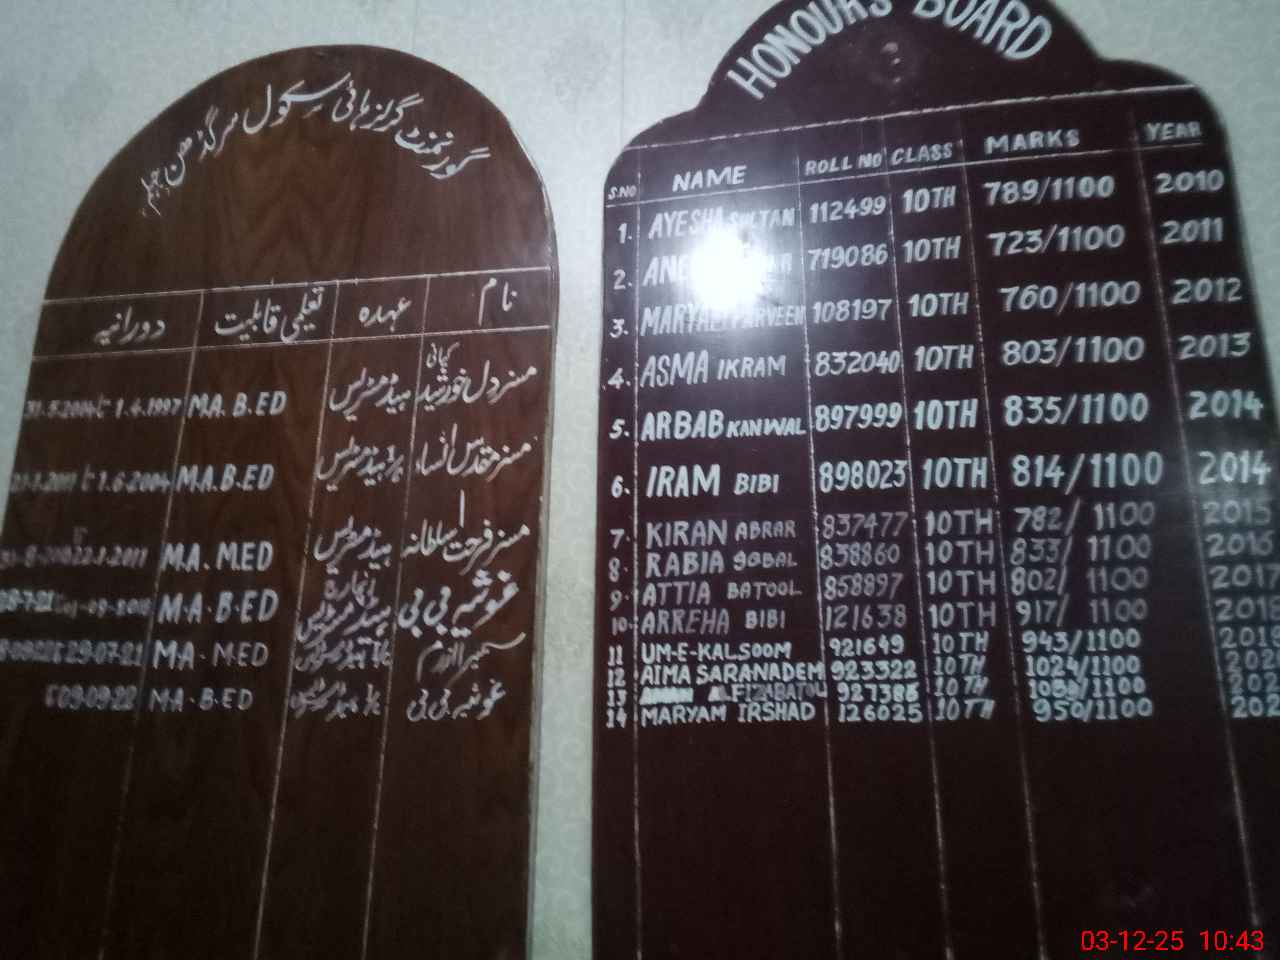 گورنمنٹ گرلز ہائی سکول سرگڈھن جہلم
نام عہدہ تعلیمی قابلیت دورانیہ
مسز دل خورشید کیانی ہیڈ مسٹریس M.A. B.ED 1.4.1997 تا
مسز مقدس النساء ہیڈ مسٹریس M.A. B.ED 1.6.2004 تا
مسز فرحت سلطانہ ہیڈ مسٹریس M.A. M.ED
غوشیہ بی بی انچارج ہیڈ مسٹریس M.A. B.ED
M.A. M.ED 29-07-21
غوشیہ بی بی M.A. B.ED 09-09-22
HONOURS BOARD
S.NO NAME ROLL NO CLASS MARKS YEAR
1. AYESHA SULTAN 112499 10TH 789/1100 2010
2. 719086 10TH 723/1100 2011
3. PARVEEN 108197 10TH 760/1100 2012
4. ASMA IKRAM 832040 10TH 803/1100 2013
5. ARBAB KANWAL 897999 10TH 835/1100 2014
6. IRAM BIBI 898023 10TH 814/1100 2014
7. KIRAN ABRAR 837477 10TH 782/1100 2015
8. RABIA 838860 10TH 833/1100 2016
9. ATTIA BATOOL 858897 10TH 802/1100 2017
10. ARREHA BIBI 121638 10TH 917/1100 2018
11 UM-E-KALSOOM 921649 10TH 943/1100
12 AIMA SARANADEM 923322 10TH 1024/1100
13 10TH
14 MARYAM IRSHAD 126025 10TH 950/1100
03-12-25 10:43